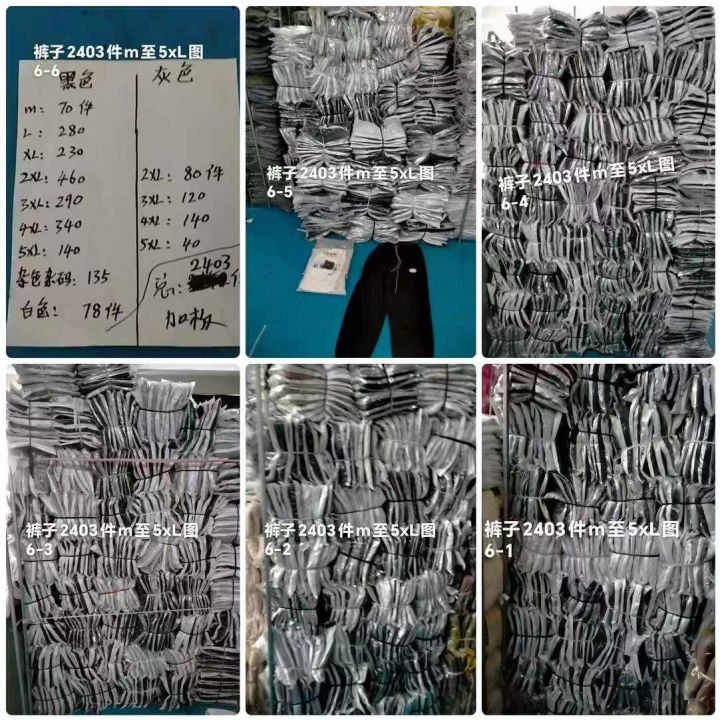 裤子2403件m至5xL图
6-6
黑色
灰色
m: 70件
L: 280
XL: 230
2XL: 460
2XL: 80件
3XL: 290
3XL: 120
4XL: 340
4XL: 140
5XL: 140
5XL: 40
杂色杂码: 135
白色: 78件
2403
总:
加粉
裤子2403件m至5xL图
6-5
裤子2403件m至5xL图
6-4
裤子2403件m至5xL图
6-3
裤子2403件m至5xL图
6-2
裤子2403件m至5xL图
6-1